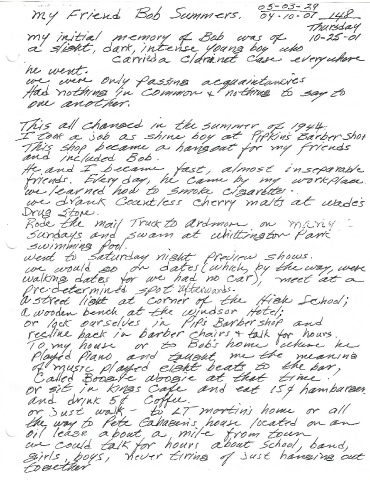 My Friend Bob Summers. 05-03-29
04-10-01 148
Thursday
10-25-01
My initial memory of Bob was of
a slight, dark, intense young boy who
carried a Claranet Case everywhere
he went.
we were only passing acquaintances
Had nothing in common & nothing to say to
one another.
This all changed in the summer of 1944.
I took a job as shine boy at Pipkins Barber Shop
This shop became a hangout for my friends
and included Bob.
He and I became, fast, almost inseparable
friends. Every day, he came by my workplace
we learned how to smoke cigarettes.
we drank Countless cherry malts at Wade's
Drug Store.
Rode the mail Truck to Ardmore on many
Sundays and swam at Whittington Park
swimming pool.
went to Saturday night Preview shows.
we would go on dates which, by the way, were
walking dates for we had no car), meet at a
pre-determined spot afterwards.
a street light at corner of the High School;
a wooden bench at the Windsor Hotel;
or lock ourselves in Pip's Barbershop and
recline back in barber chairs & talk for hours.
To my house or to Bob's home where he
Played Piano, and taught me the meaning
of music played eight beats to the bar,
Called Boogie Woogie at that time.
or sit in Kings Cafe and eat 15¢ hamburgers
and drink 5¢ Coffee.
or Just walk - to LT Martin's home or all
the way to Pete house located on an
oil lease about a mile from town
we could talk for hours about school, band,
girls, boys, never tiring of Just hanging out
together